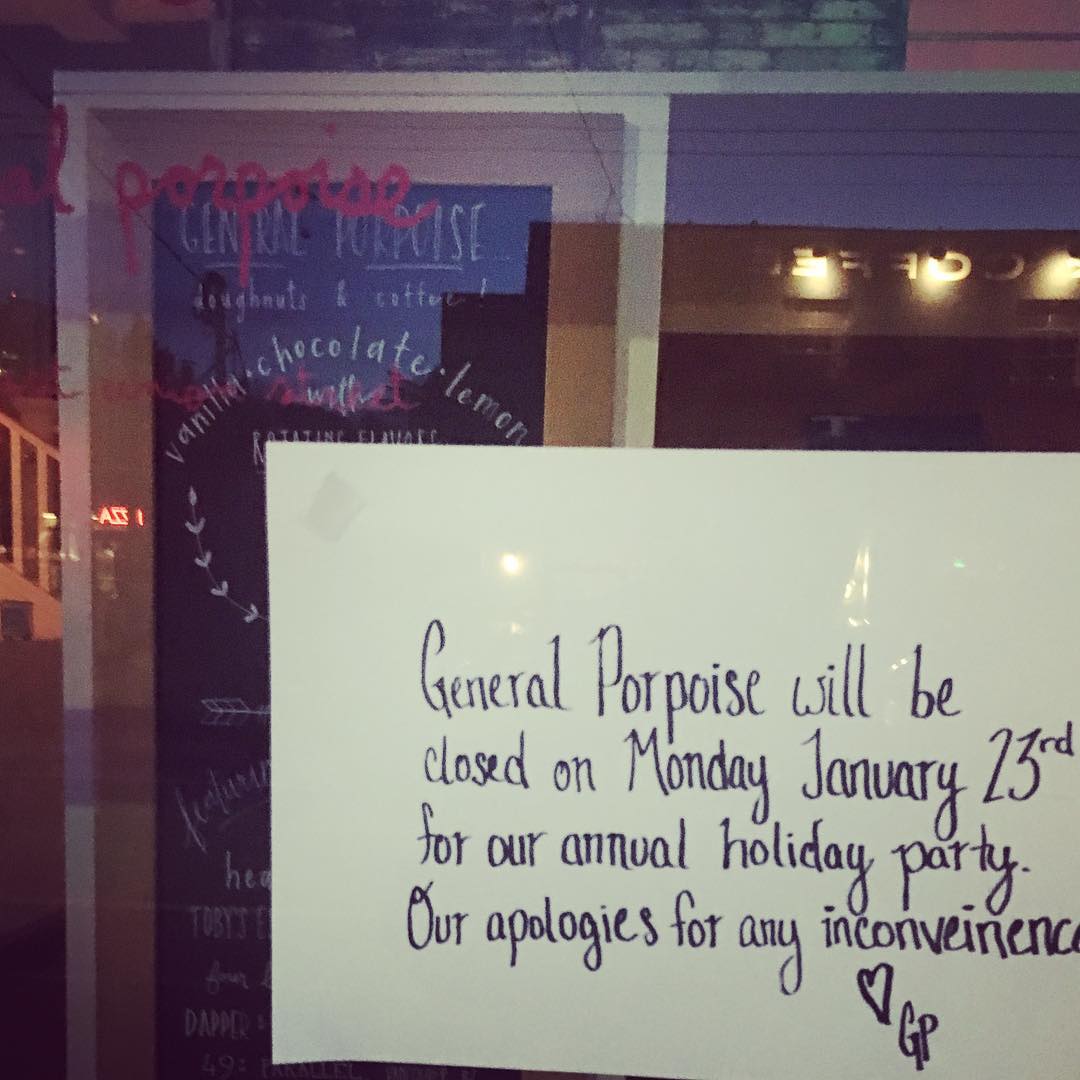 porpoise
GENERAL PORPOISE
doughnuts & coffee!
vanilla · chocolate · lemon
with
ROTATING FLAVORS
COFFEE
General Porpoise will be
closed on Monday January 23rd
for our annual holiday party.
Our apologies for any inconveinence
♡ GP
TOBY'S E
DAPPER &
49: PARALLEL